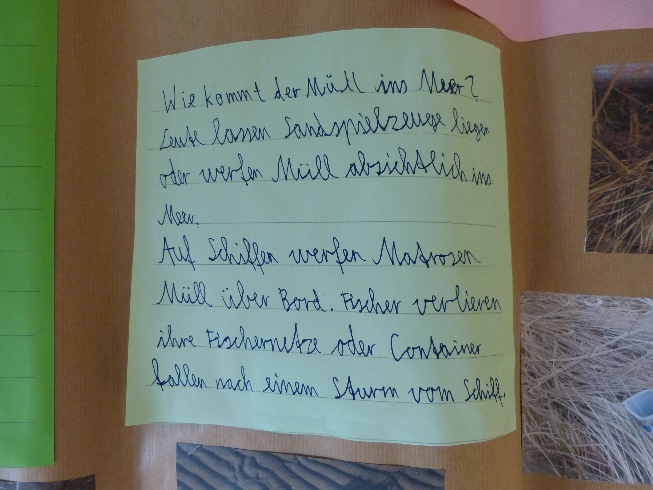 Wie kommt der Müll ins Meer?
Leute lassen Sandspielzeuge liegen
oder werfen Müll absichtlich ins
Meer.
Auf Schiffen werfen Matrosen
Müll über Bord. Fischer verlieren
ihre Fischernetze oder Container
fallen nach einem Sturm vom Schiff.